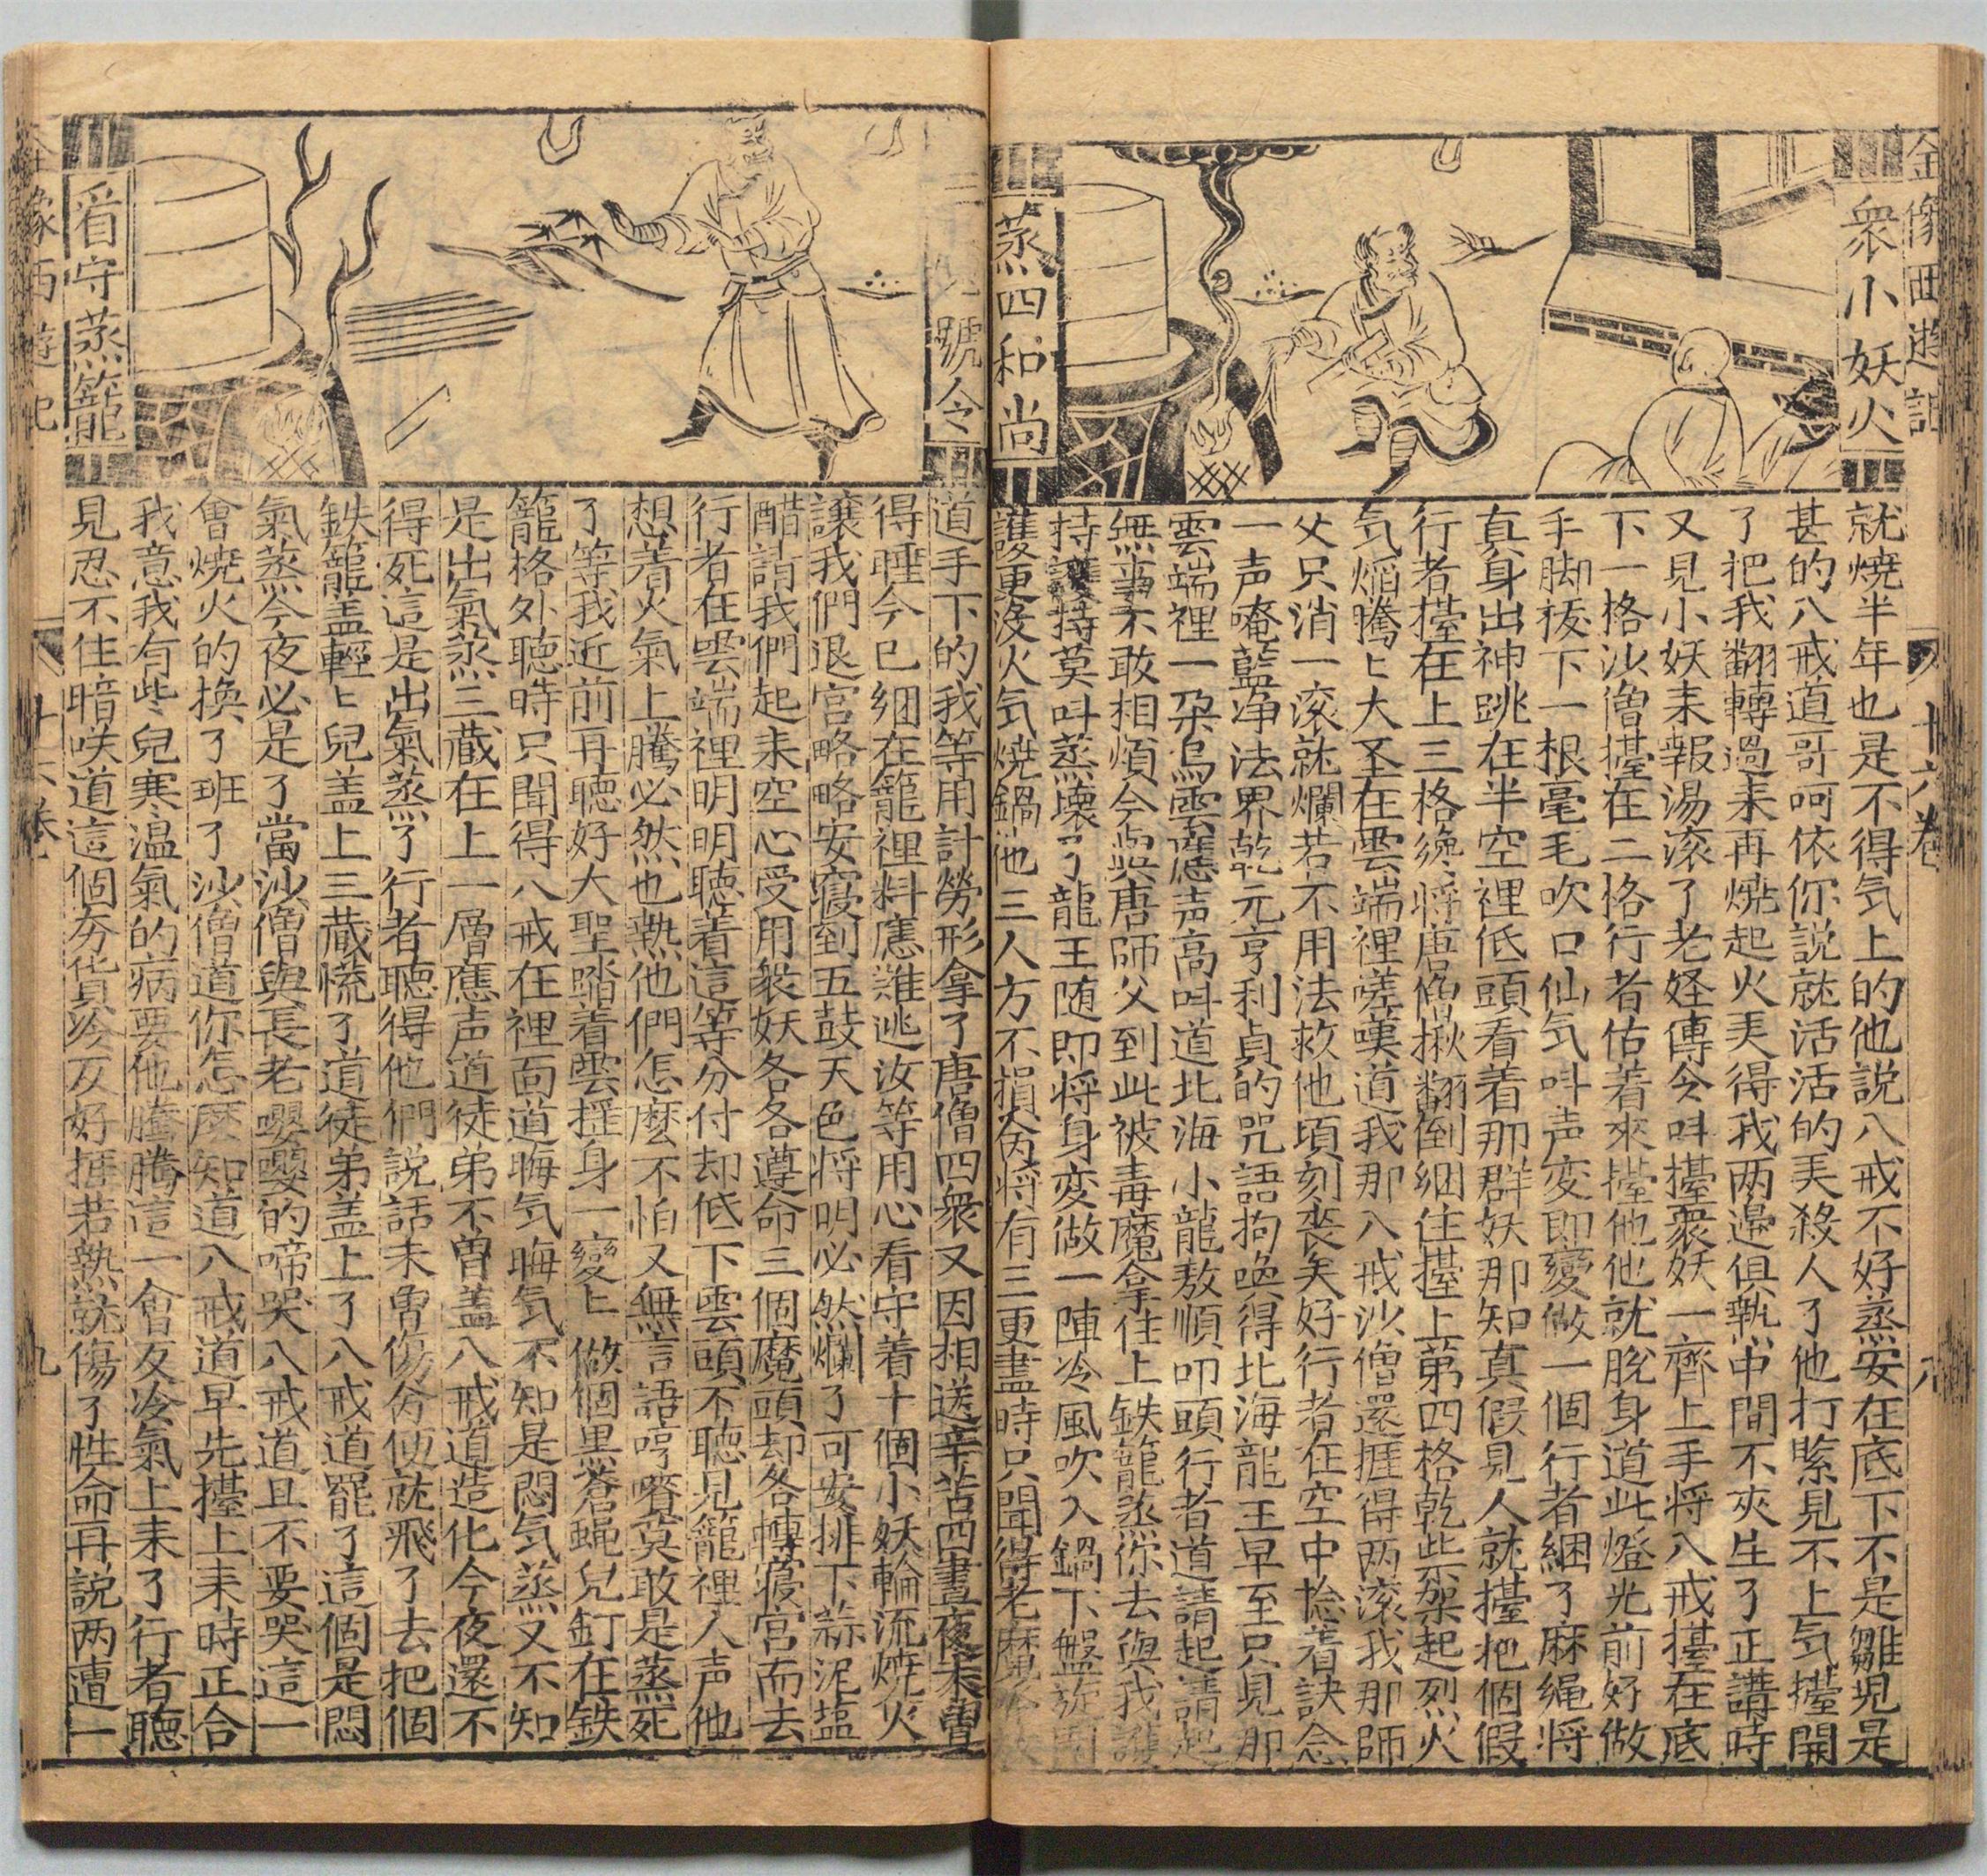 全像西遊記
十六卷
八
衆小妖火
蒸四和尚
就燒半年也是不得気上的他說八戒不好蒸安在底下不是雛児是
甚的八戒道哥呵依你說就活活的美殺人了他打緊見不上気擡開
了把我翻轉過耒再燒起火美得我两邉俱熟中間不夾生了正講時
又見小妖耒報湯滚了老妖傳令呌擡衆妖一齊上手将八戒擡在底
下一格沙僧擡在二格行者估着來擡他他就脫身道此燈光前好做
手脚拔下一根毫毛吹口仙気呌声变即變做一個行者綑了麻縄将
真身出神跳在半空裡低頭看着那群妖那知真假見人就擡把個假
行者擡在上三格纔将唐僧揪翻倒綑住擡上第四格乾柴架起烈火
気焰騰〻大圣在雲端裡嗟嘆道我那八戒沙僧還捱得两滚我那師
父只消一滚就爛若不用法救他頃刻丧矣好行者在空中捻着訣念
一声唵藍浄法界乾元亨利貞的咒語拘喚得北海龍王早至只見那
雲端裡一朶烏雲應声高呌道北海小龍敖順叩頭行者道請起請起
無事不敢相煩今與唐師父到此被毒魔拿住上鉄籠蒸你去與我護
持護持莫呌蒸壊了龍王随即将身变做一陣冷風吹入鍋下盤旋圍
護更没火気燒鍋他三人方不損命将有三更盡時只聞得老魔
號令
看守蒸籠
道手下的我等用計勞形拿了唐僧四衆又因相送辛苦四晝夜未曾
得睡今已綑在籠裡料應難逃汝等用心看守着十個小妖輪流燒火
讓我們退宮略略安寢到五鼓天色将明必然爛了可安排下蒜泥塩
醋請我們起耒空心受用衆妖各各遵命三個魔頭却各轉寢宮而去
行者在雲端裡明明聽着這等分付却低下雲頭不聽見籠裡人声他
想着火氣上騰必然也熱他們怎麼不怕又無言語哼㘉莫敢是蒸死
了等我近前再聽好大聖踏着雲摇身一變〻做個黒蒼蝇兒釘在鉄
籠格外聽時只聞得八戒在裡面道晦気晦気不知是悶気蒸又不知
是出氣蒸三蔵在上一層應声道徒弟不曽盖八戒道造化今夜還不
得死這是出氣蒸了行者聽得他們說話未曽傷命便就飛了去把個
鉄籠盖輕〻兒盖上三蔵慌了道徒弟盖上了八戒道罷了這個是悶
氣蒸今夜必是了當沙僧與長老嚶嚶的啼哭八戒道且不要哭這一
會燒火的換了班了沙僧道你怎麼知道八戒道早先擡上耒時正合
我意我有些兒寒温氣的病要他騰騰這一會反冷氣上耒了行者聽
見忍不住暗咲道這個夯貨冷反好捱若熱就傷了性命再說两遭一
全像西遊記
十六卷
九